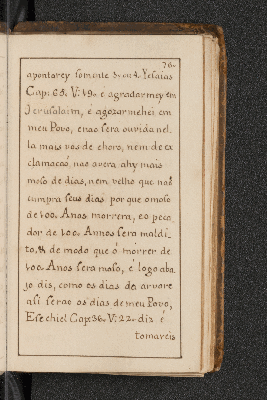 76.
apontarey somente 3. ou 4. Yesaias
Cap: 65. V: 19. e agradarmey em
Jerusalaim, é agozarmehei em
meu Povo, enaõ sera ouvida nel
la mais vos de choro, nem de ex
clamacaõ naõ avera ahy mais
moso de dias, nem velho que naõ
cumpra seus dias porque o moso
de 100. Anos morrera, e o peca
dor de 100. Annos sera maldi
to, de modo que ó morrer de
100. Anos sera moso, é logo aba
jo dis, como os dias da arvore
asi seraõ os dias de meu Povo,
Esechiel Cap: 36. V: 22. diz é
tomareis